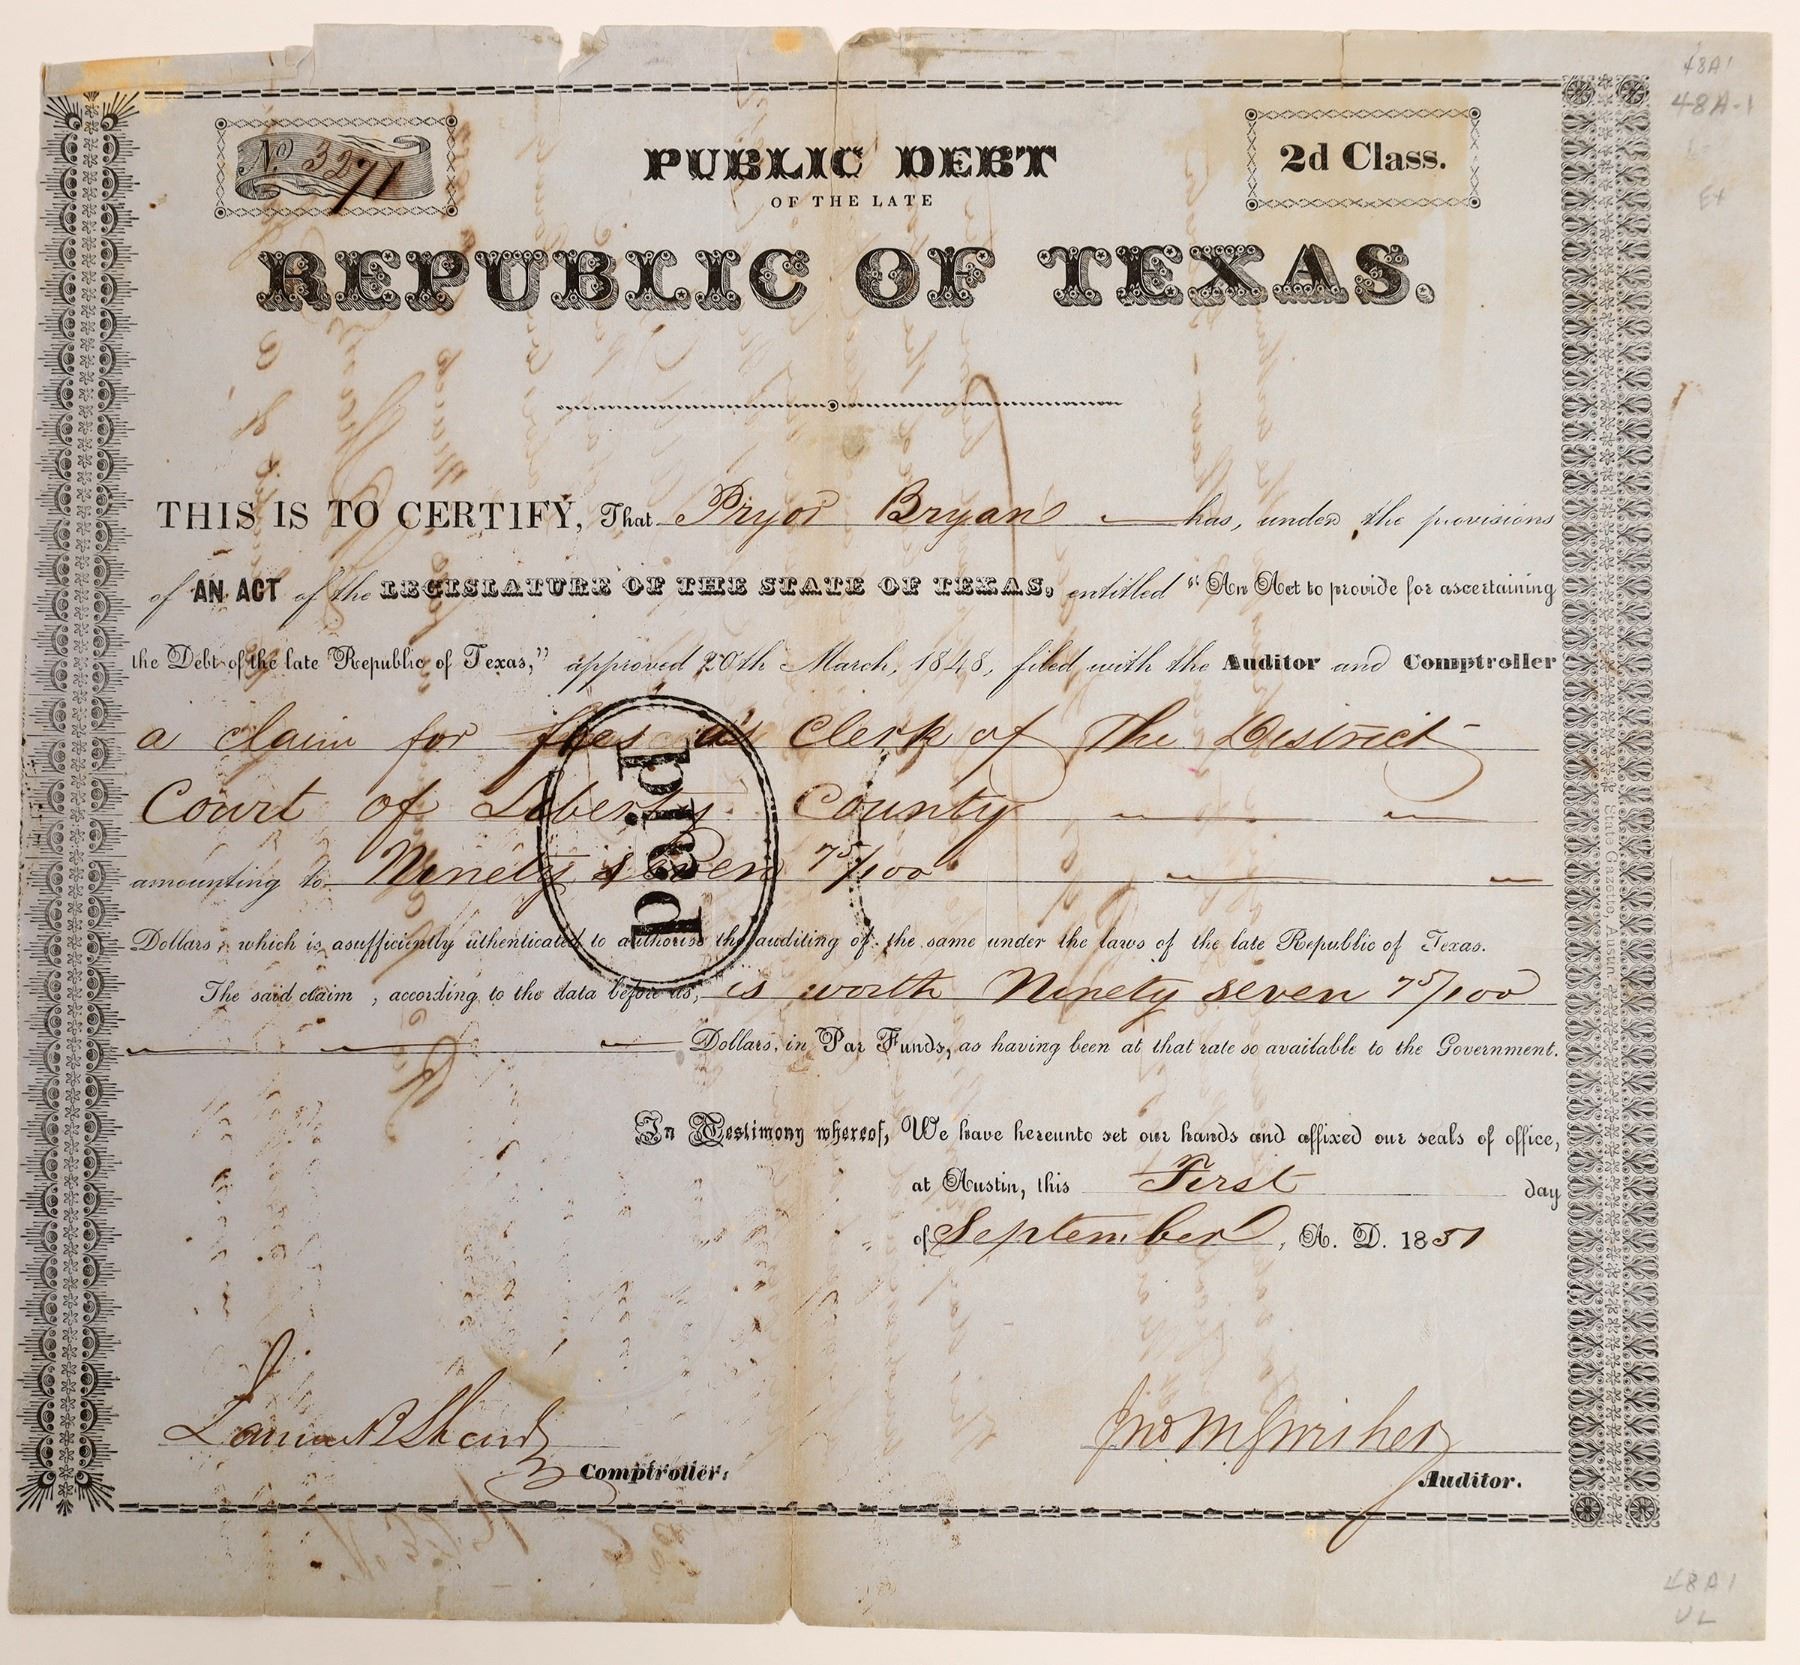 48A1
48A-1
Ex
No 3271
PUBLIC DEBT
2d Class.
OF THE LATE
REPUBLIC OF TEXAS.
THIS IS TO CERTIFY, That Pryor Bryan has, under the provisions
of AN ACT of the LEGISLATURE OF THE STATE OF TEXAS, entitled "An Act to provide for ascertaining
the Debt of the late Republic of Texas," approved 20th March, 1848, filed with the Auditor and Comptroller
a claim for fees as Clerk of The District
Court of Liberty County
amounting to Ninety seven 75/100
Dollars, which is asufficiently uthenticated to authorise the auditing of the same under the laws of the late Republic of Texas.
The said claim, according to the data before us, is worth Ninety seven 75/100
Dollars, in Par Funds, as having been at that rate so available to the Government.
In Testimony whereof, We have hereunto set our hands and affixed our seals of office,
at Austin, this First day
of September, A. D. 1851
James B Shaw
Comptroller.
Jno M Swisher
Auditor.
Paid
State Gazette, Austin
48A1
VL